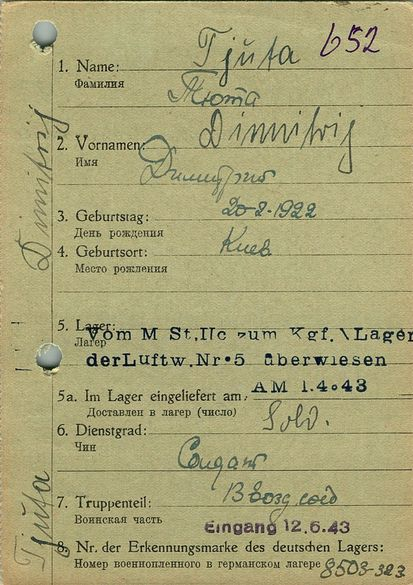 Tjuta 652
1. Name:
Фамилия
Тюта
Dimitrij
2. Vornamen:
Имя
Димитрий
3. Geburtstag: 20-2-1922
День рождения
4. Geburtsort: Киев
Место рождения
5. Lager:
Лагер
Vom M St.IIc zum Kgf.\Lager
derLuftw.Nr.5 überwiesen
AM 1.4.43
5a. Im Lager eingeliefert am
Доставлен в лагер (число)
6. Dienstgrad: Sold.
Чин
Солдат
7. Truppenteil:
Воинская часть
Eingang 12.6.43
8. Nr. der Erkennungsmarke des deutschen Lagers:
Номер военнопленного в германском лагере 8503-323
Tjuta Dimitrij